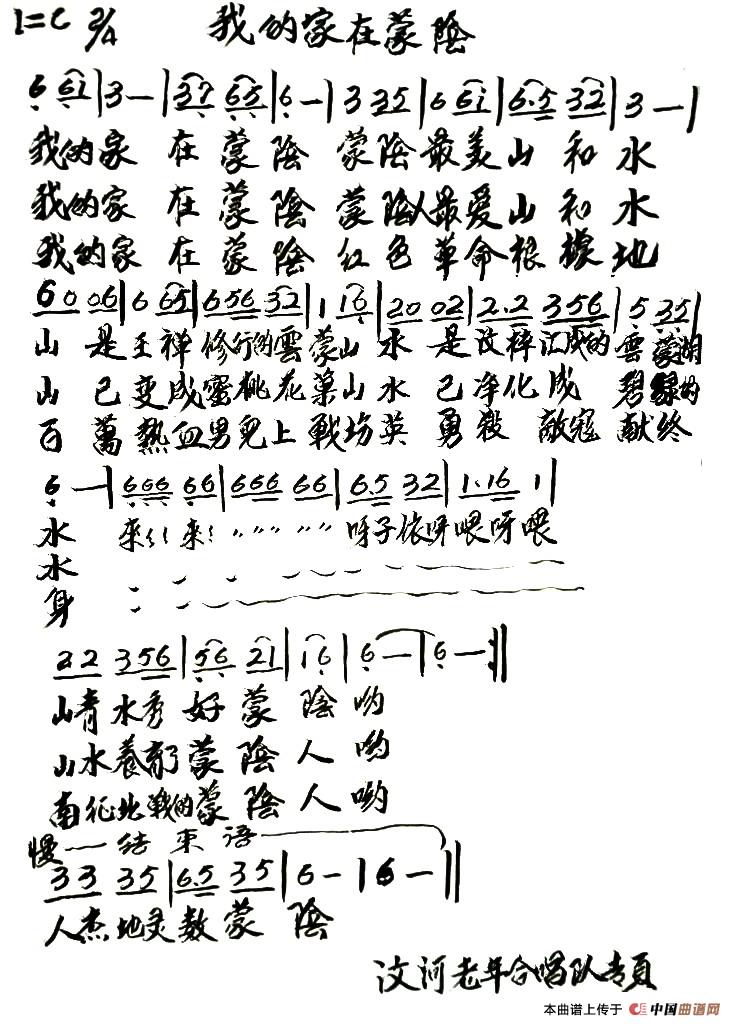 1=C 2/4 我的家在蒙陰
6 6i | 3 — | 37 65 | 6 — | 3 335 | 6 6i | 6.5 32 | 3 — |
我的家 在 蒙 陰 蒙陰最美山 和 水
我的家 在 蒙 陰 蒙陰人最爱山 和 水
我的家 在 蒙 陰 红色 革命根 據 地
60 06 | 6 65 | 656 32 | 1 16 | 20 02 | 2.2 356 | 5 35 |
山 是王禅修行的雲蒙山 水 是汶梓汇成的 雲蒙湖
山 已变成蜜桃花菓山 水 已净化成 碧绿的
百 萬熱血男兒上戰场英 勇殺 敵寇 献终
6 — | 666 66 | 666 66 | 6.5 32 | 1.16 1 |
水 來 來 呀子依呀喂呀喂
水
身
22 356 | 56 21 | 16 | 6 — | 6 — :||
山青水秀 好 蒙 陰 哟
山水養育了蒙 陰 人 哟
南征北戰的蒙 陰 人 哟
慢 — 结 束 语
33 35 | 6.5 35 | 6 — | 6 — ||
人杰地灵數蒙 陰
汶河老年合唱队专頁
本曲谱上传于 中国曲谱网